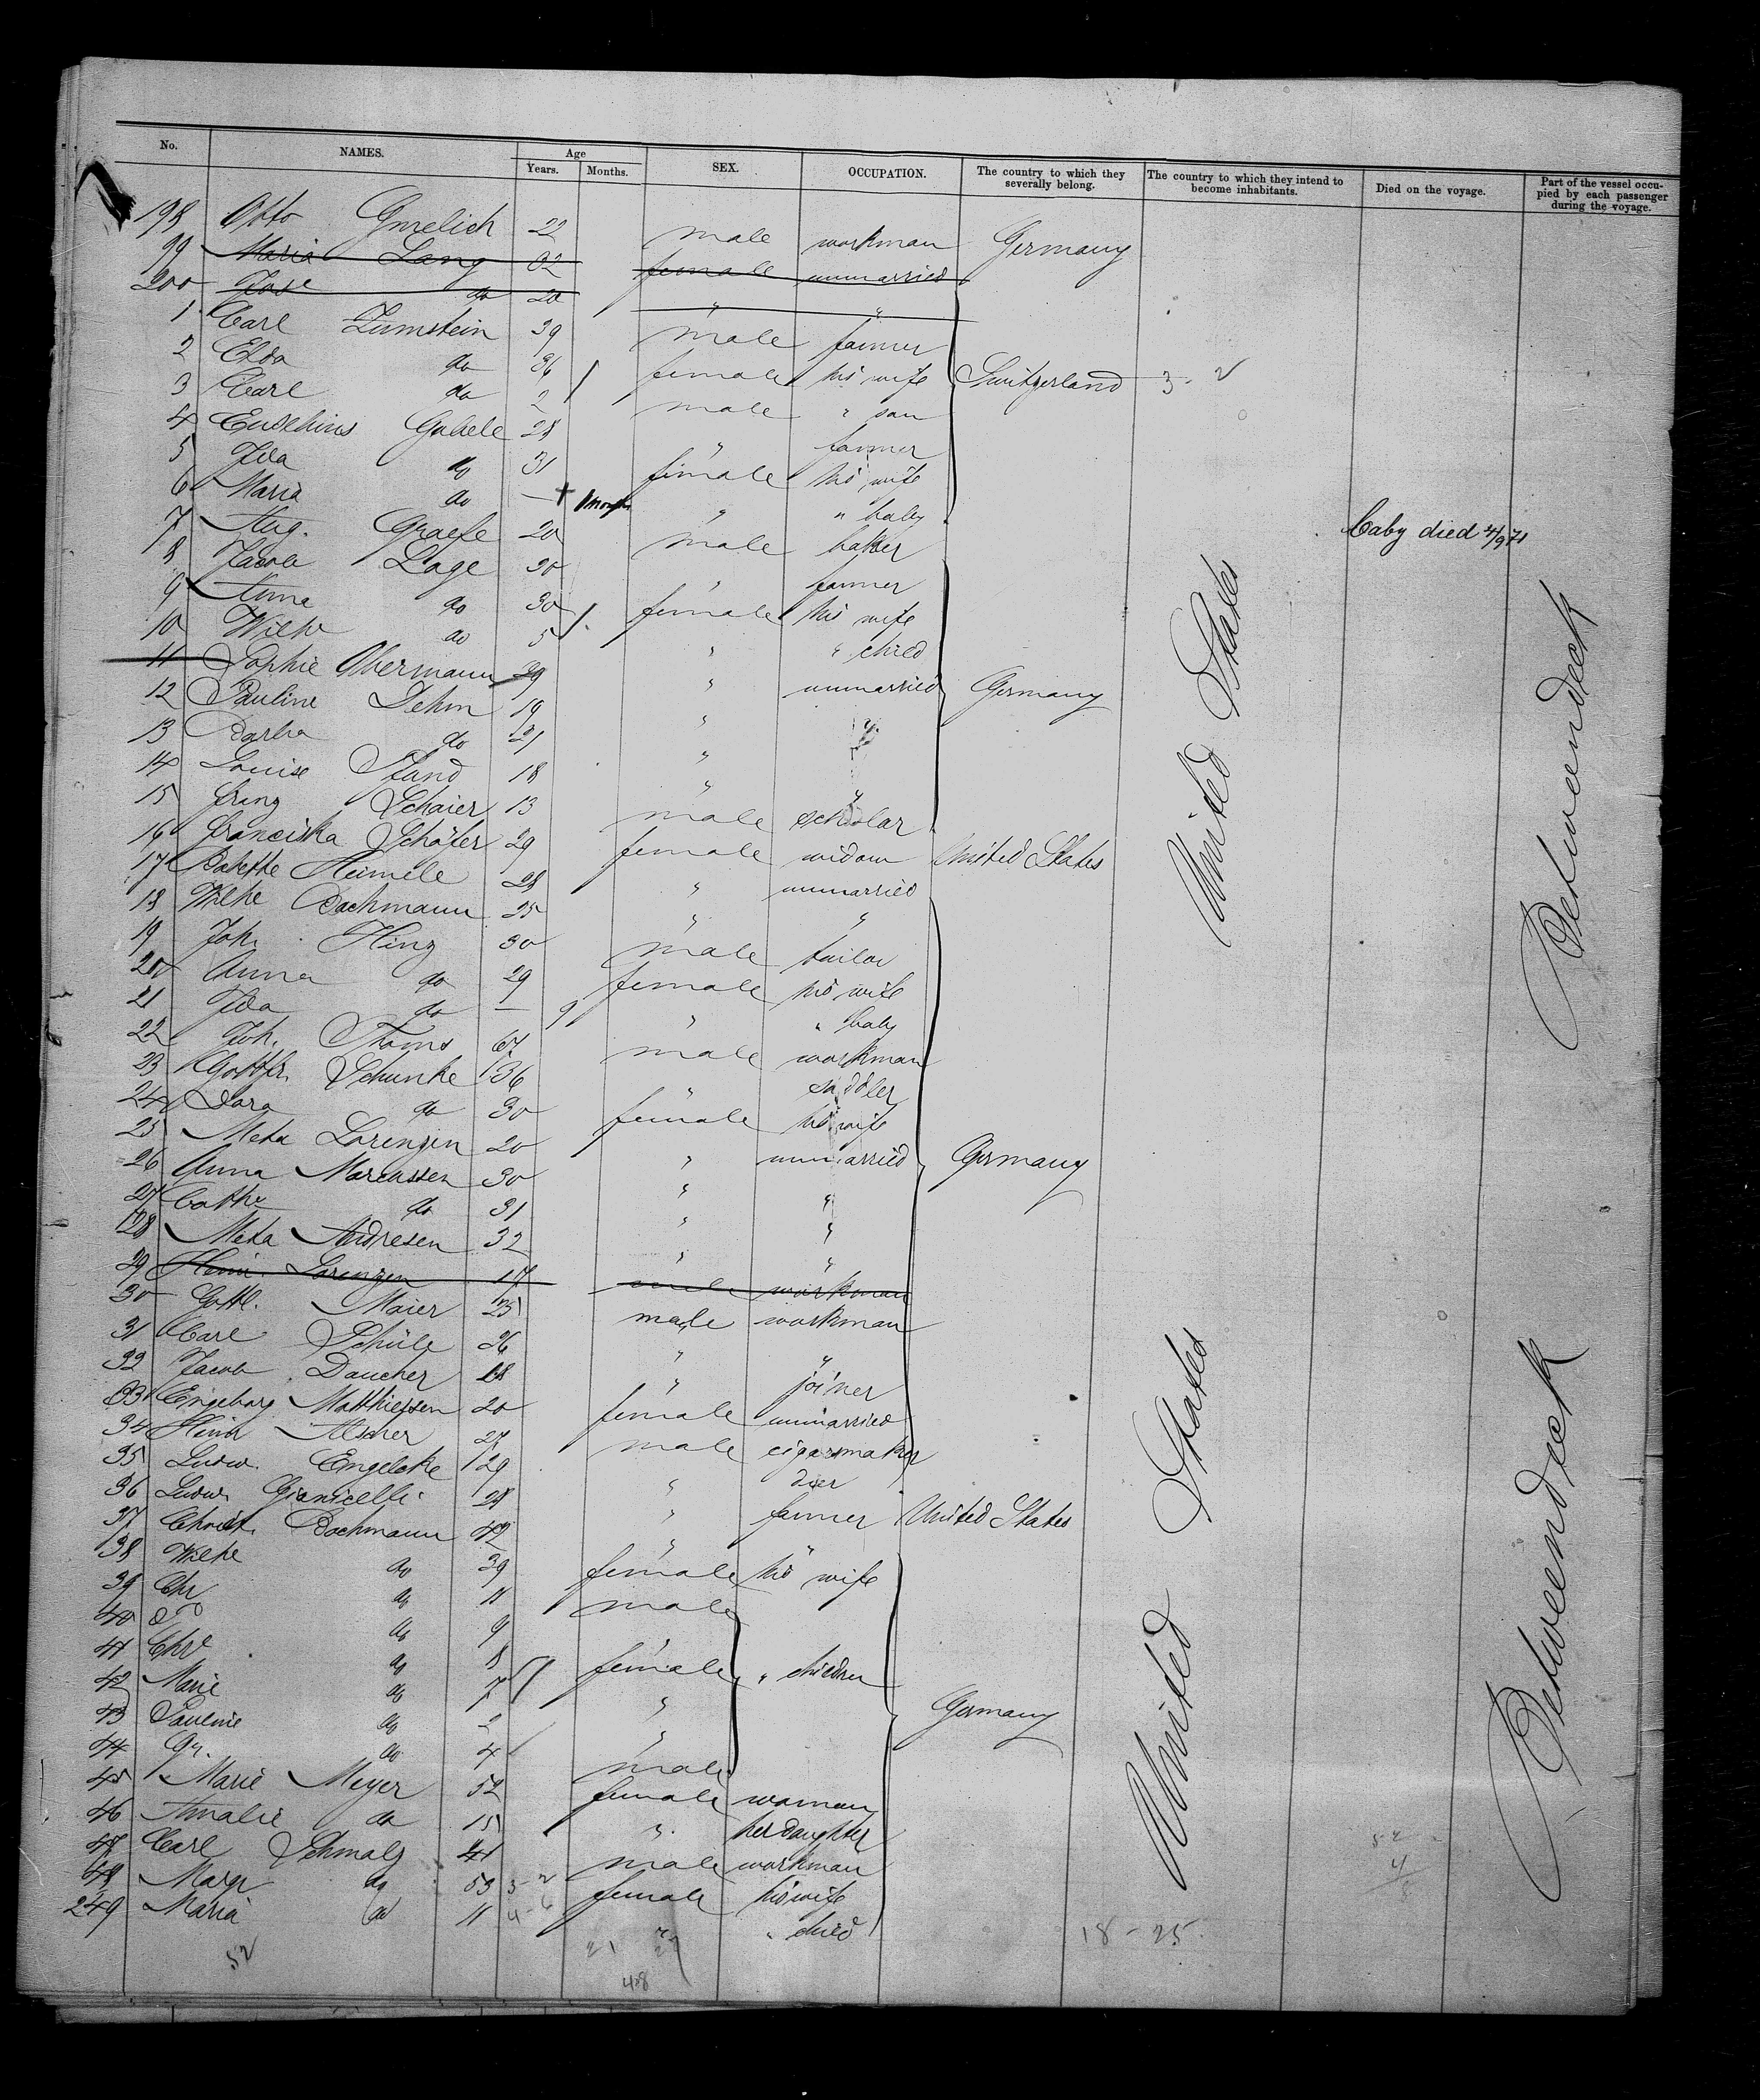 No. NAMES. Age Years. Months. SEX. OCCUPATION. The country to which they severally belong. The country to which they intend to become inhabitants. Died on the voyage. Part of the vessel occupied by each passenger during the voyage.
198 Otto Gmelich 22 male workman Germany
99 Maria Lang 32 female unmarried
200 do 20 " "
1 Carl Zumstein 39 male farmer
2 Elda do 36 female his wife Switzerland 3-2
3 Carl do 2 male " son
4 Eusebius Gabele 28 " farmer
5 Ida do 31 female his wife
6 Maria do — + 1 month " " baby Baby died 4/9 71
7 Aug. Graefe 20 male baker
8 Jacob Lage 30 " farmer
9 Anna do 30 female his wife
10 Wilhe do 5 " " child
11 Sophie Obermann 29 " unmarried Germany
12 Pauline Dehm 19 " "
13 Barba do 21 " "
14 Louise Pfand 18 " "
15 Franz Schaier 13 male scholar
16 Franciska Schäfer 29 female widow United States
17 Babette Heimele 28 " unmarried
18 Wilhe Bachmann 25 " "
19 Joh. Hinz 30 male tailor
20 Anna do 29 female his wife
21 Ida do — 9 " " baby
22 Joh. Thoms 67 male workman
23 Gottfr. Schunke 36 " saddler
24 Dora do 30 female his wife
25 Meta Lorenzen 20 " unmarried Germany
26 Anna Marcussen 30 " "
27 Cathe do 31 " "
28 Meta Andresen 32 " "
29 Heinr. Lorenzen 17 male workman
30 Gottl. Maier 25 male workman
31 Carl Schüle 26 " "
32 Jacob Daucher 18 " joiner
33 Engeborg Matthiessen 20 female unmarried
34 Heinr Alscher 27 male cigarsmaker
35 Ludw. Engelcke 29 " dier
36 Ludw. Gianicelli 28 " farmer United States
37 Christ. Bachmann 42 " "
38 Wilhe do 39 female his wife
39 Chr do 11 male
40 do 9
41 Chre do 8 female " children
42 Marie do 7 " Germany
43 Pauline do 2 "
44 Gr. do 4 male
45 Marie Meyer 52 female woman
46 Amalie do 15 " her daughter
47 Carl Schmalz 41 male workman
48 Margr do 53 female his wife
249 Maria do 11 " " child
United States
United States
Betweendeck
Betweendeck
52
4
8
18-25
52
21 27
48